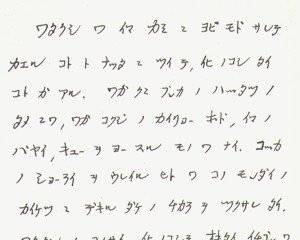 ワタクシ ワ イマ カミ ニ ヨビ モドサレテ
カエル コト ト ナッタ ニ ツイテ, 化ノコシ タイ
コト ガ アル. ワガ クニ ブンカ ノ ハッタツ ノ
タメ ニワ, ワガ コクジ ノ カイリョー ホド, イマ ノ
バヤイ, キューヲヨースル モノ ワ ナイ. コッカ
ノ ショーライ ヲ ウレイル ヒト ワ コノ モンダイ ノ
カイケツ ニ デキル ダケ ノ チカラ ヲ ツクサレ タイ.